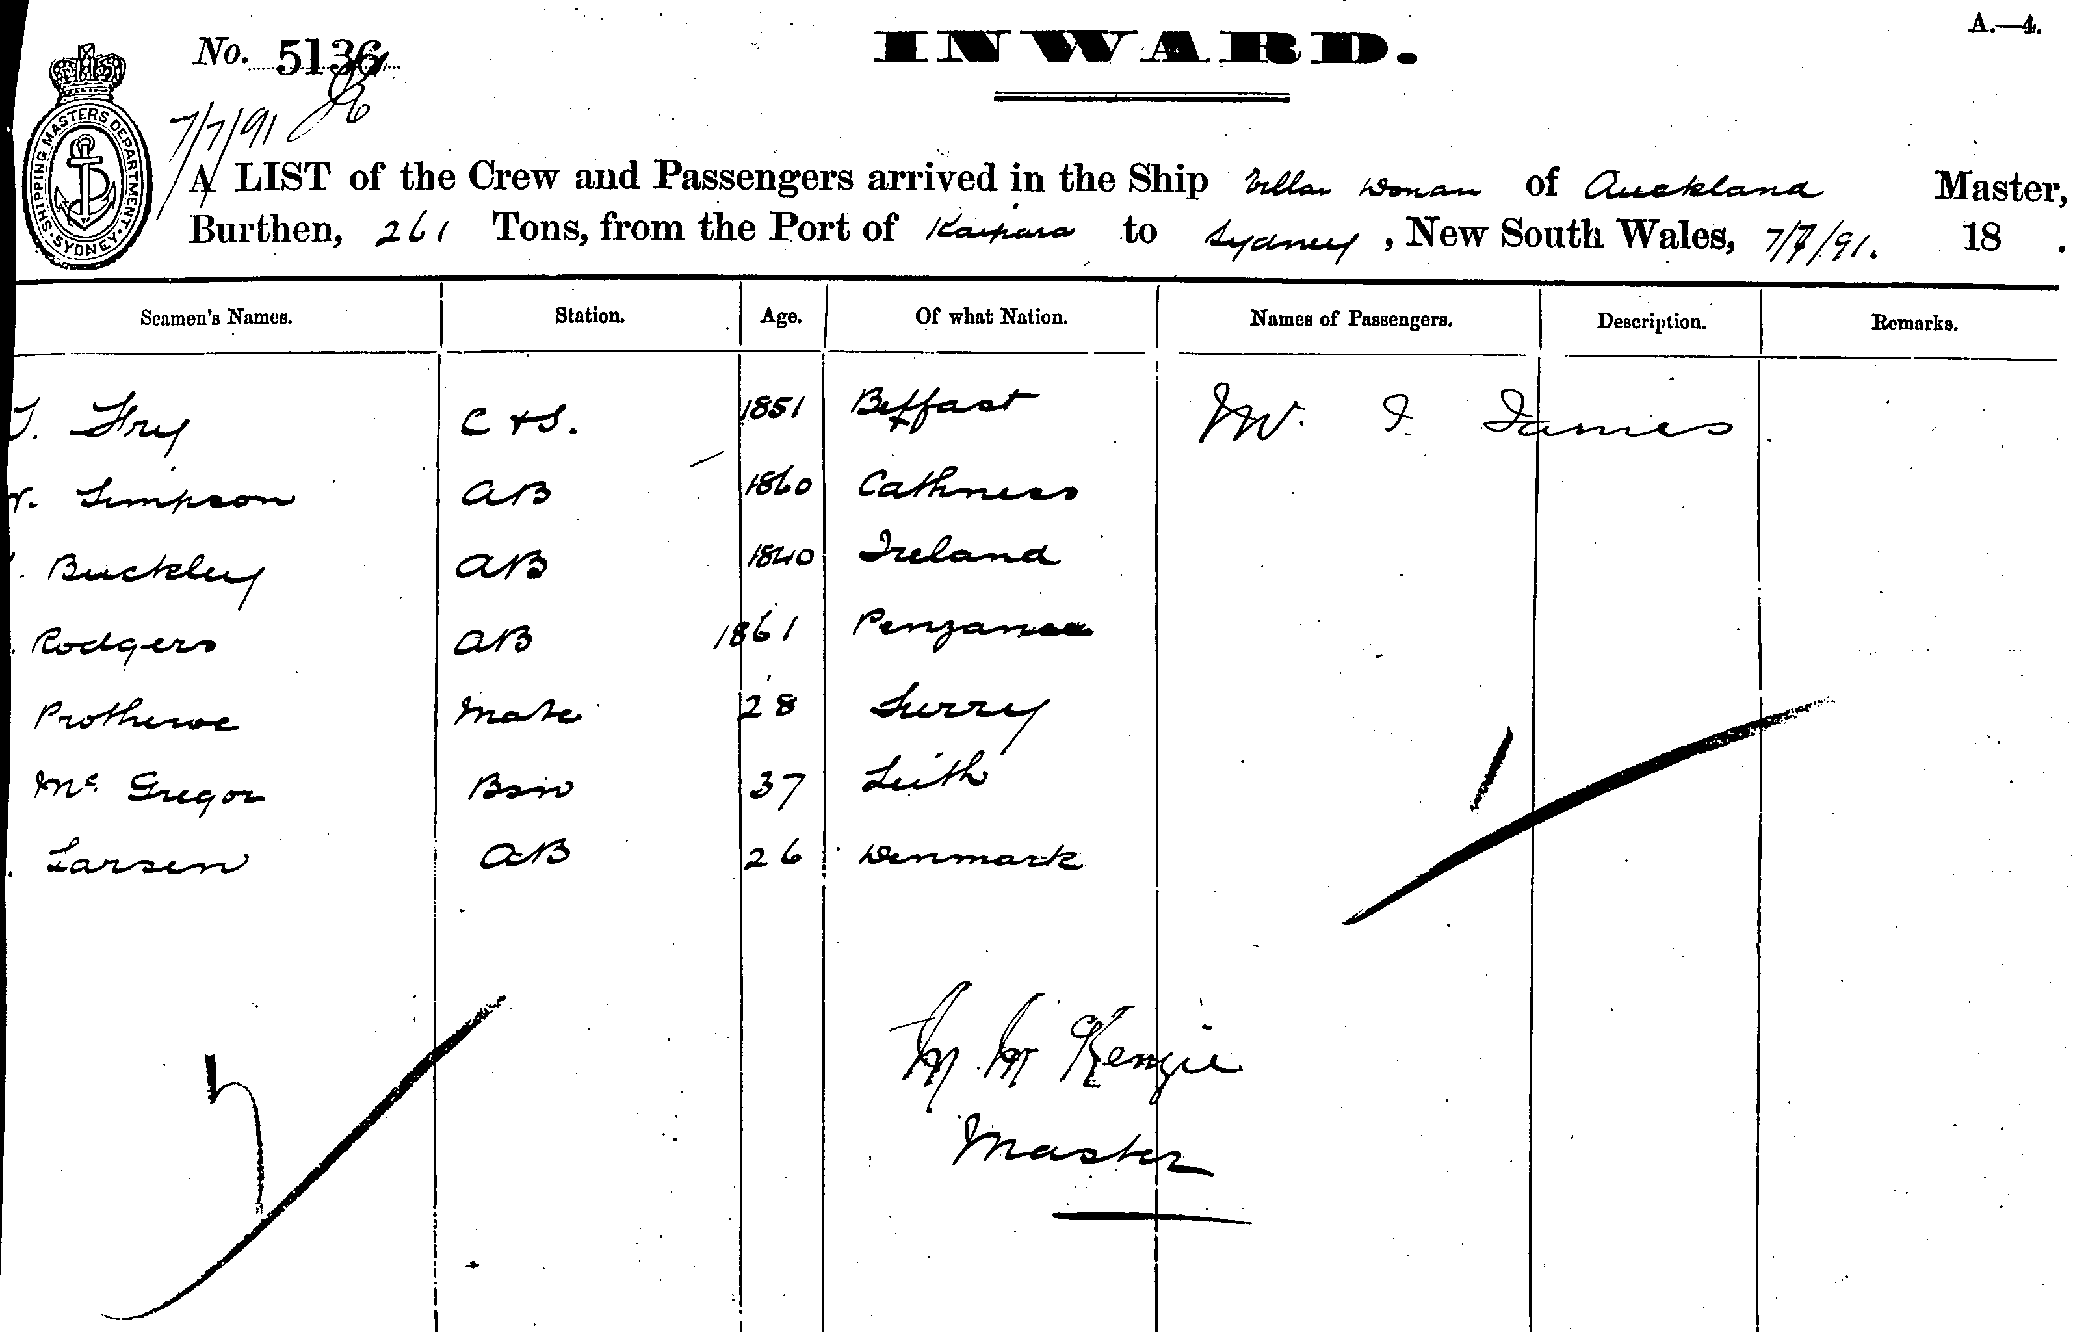 INWARD.
A.—4.
No. 5136
7/7/91
SHIPPING MASTERS DEPARTMENT SYDNEY
A LIST of the Crew and Passengers arrived in the Ship of Auckland Master,
Burthen, 261 Tons, from the Port of Kaipara to Sydney, New South Wales, 7/7/91. 18 .
Seamen's Names. Station. Age. Of what Nation. Names of Passengers. Description. Remarks.
Fry C & S. 1851 Belfast W. J. James
Simpson AB 1860 Cathness
Buckley AB 1840 Ireland
Rodgers AB 1861 Penzance
Protheroe Mate 28 Surry
Mc Gregor Bsn 37 Leith
Larsen AB 26 Denmark
1
7
M. McKenzie
Master